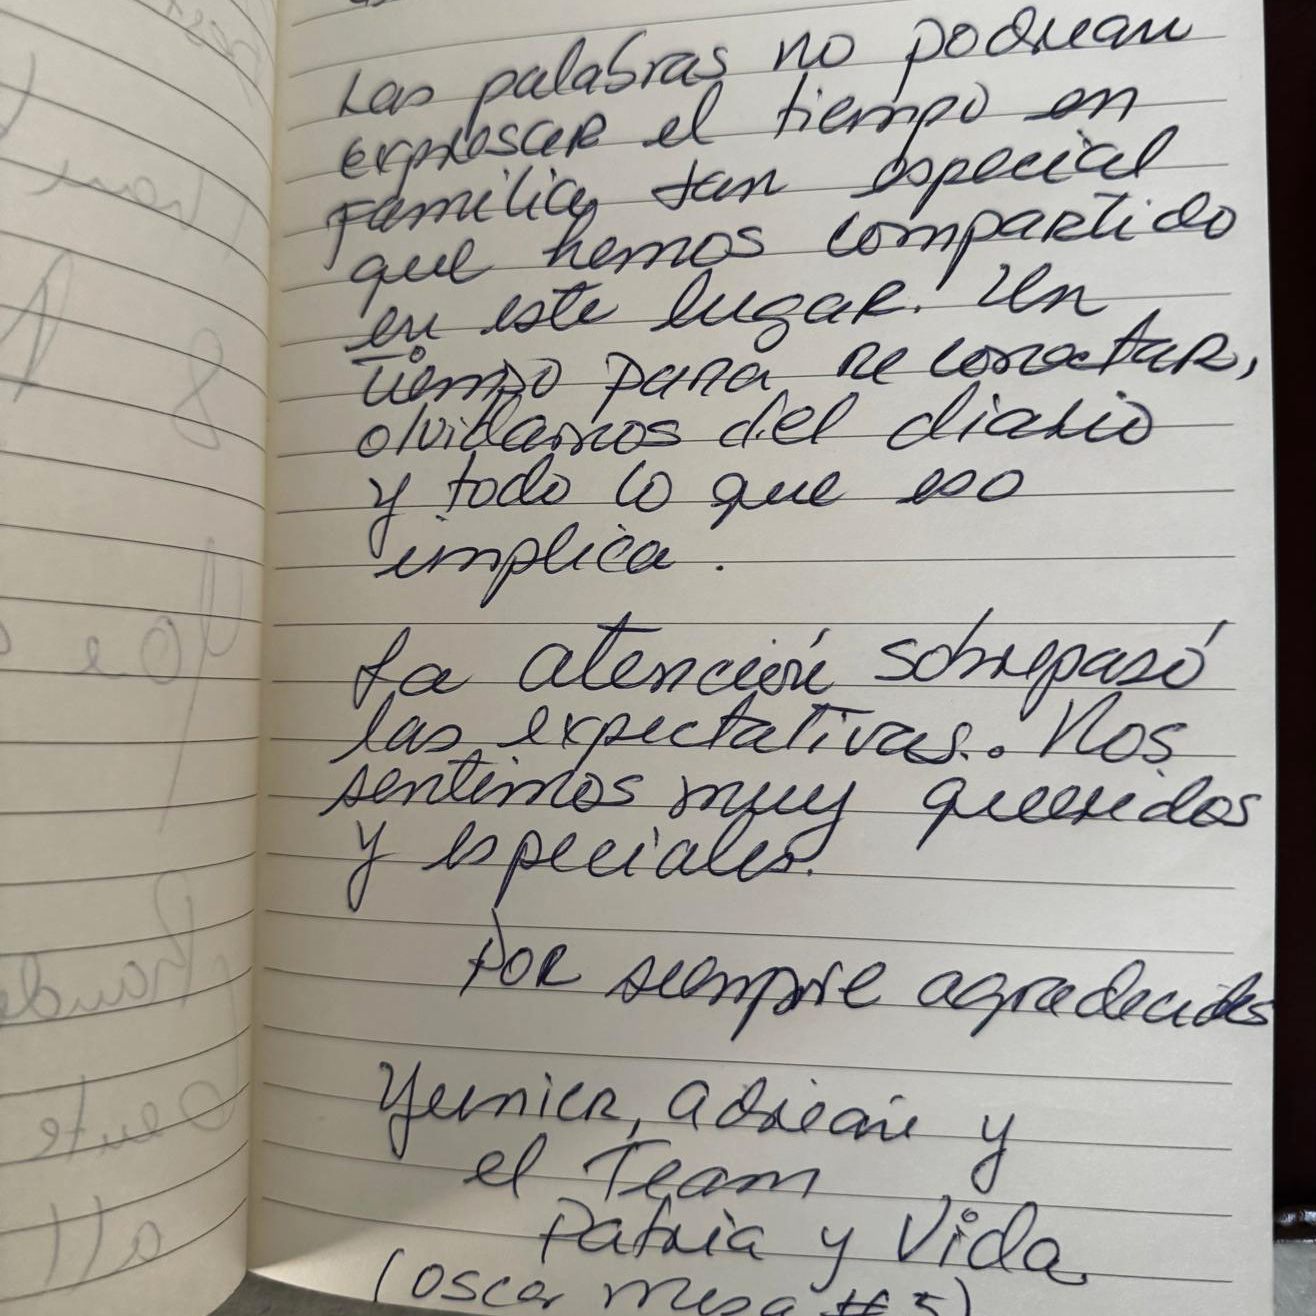 Las palabras no podrian
expresar el tiempo en
familia, tan especial
que hemos compartido
en este lugar. Un
tiempo para reconectar,
olvidarnos del diario
y todo lo que eso
implica.
La atención sobrepasó
las expectativas. Nos
sentimos muy queridos
y especiales.
Por siempre agradecidos
Yunier, Adrian y
el Team
Patria y Vida
(Oscar Mesa #5)